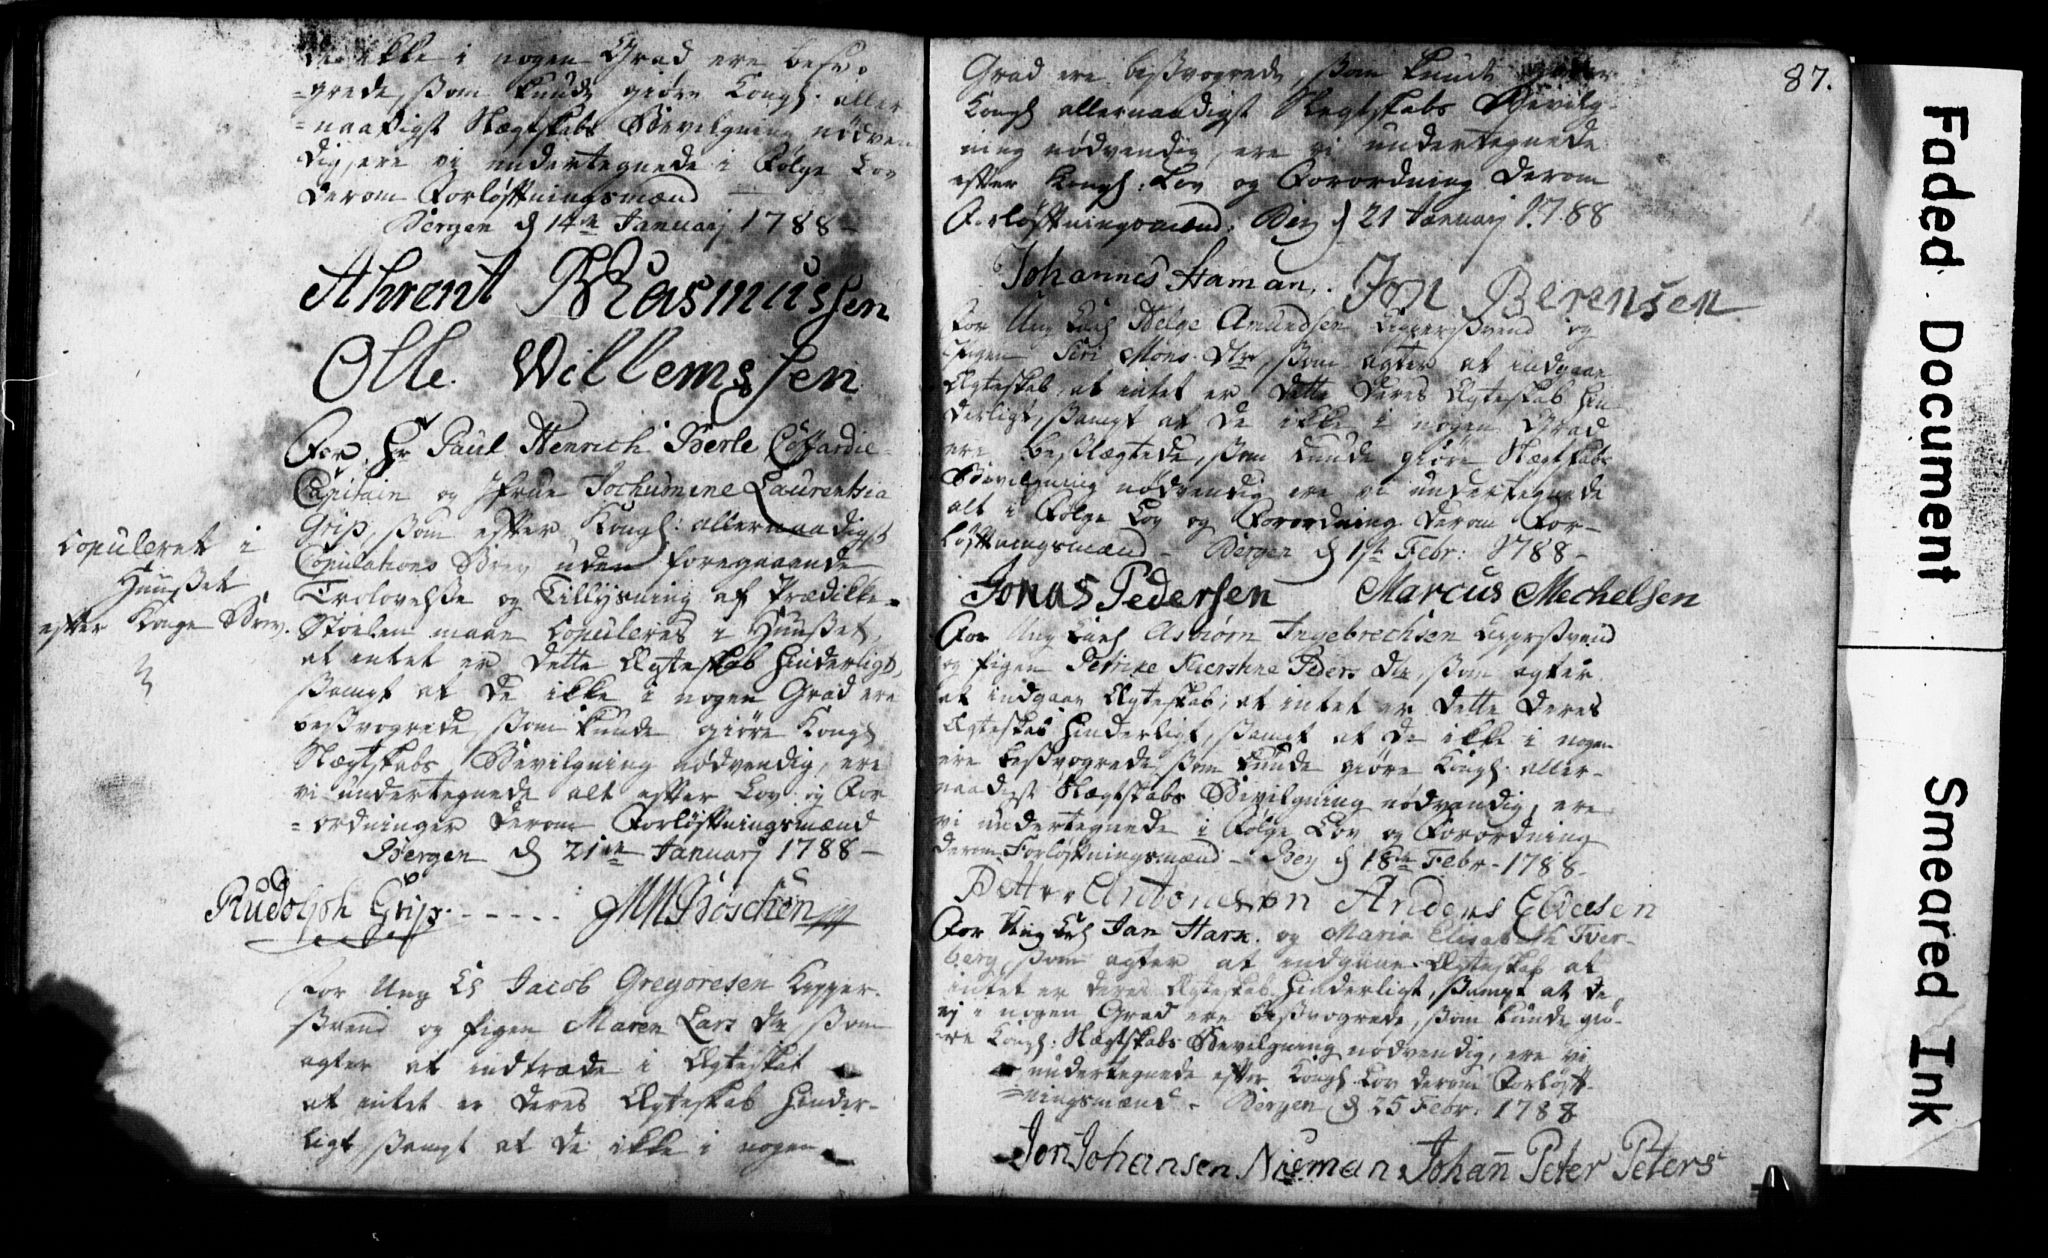 de ikke i nogen Grad ere besv.
=grede, ßom kunde giøre Kongl. aller
=naadigst Slægtskabs Bevilgning nødven
dig, ere vi undertegnede i Følge Lov
derom Forløftningsmænd
Bergen d 14de Januarj 1788
Ahrent Rasmussen
Olle Willemssen
For Hr Paul Henrich Berle Coffardie-
Capitain og Jfrue Jochumine Laurentzia
Grip, ßom efter Kongl: allernaadigst
Copulations Brev uden foregaaende
Trolovelße og Tillysning af Prædikke-
Stoelen maae Copuleres i Huußet,
at intet er dette Ægteskab Hinderligt,
ßampt at de ikke i nogen Grad ere
beßvogrede, ßom kunde giøre Kongl
Slægtskabs Bevilgning nødvendig, ere
vi undertegnede alt efter Lov og For
=ordninger derom Forløftningsmænd
Bergen d 21de Januarj 1788
Copuleret i
Huußet
efter Konge Brev.
Rudolph Grip. - - - - - JMBöschen
For Ung K Jacob Gregoresen Kipper-
ßvend og Pigen Maren Lars Dtr ßom
agter at indtræde i Ægteskab
at intet er deres Ægteskab Hinder-
ligt, ßampt at de ikke i nogen
87.
Grad ere beßvogrede, ßom kunde giøre
Kongl allernaadigst Slegtskabs Bevilg-
ning nødvendig, ere vi undertegnede
efter Kongl: Lov og Forordning derom
Forløftningsmænd. Berg d 21 Januarj 1788
Johannes Haman. Jon Berensen
For Ung Karl Helge Amundsen Kipperßvend og
Pigen Siri Mons Dtr, ßom agter at indgaae
Ægteskab, at intet er dette deres Ægteskab Hin
derligt, ßampt at de ikke i nogen Grad
ere beßlægtede, ßom kunde giøre Slægtskabs
Bevilgning nødvendig ere vi undertegnede
alt i Følge Lov og Forordning derom For-
løftningsmænd - Bergen d 1st Febr: 1788-
Jonas Pedersen Marcus Mechelsen
For Ung Karl Asbiørn Ingebrechsen Kipperßvend
og Pigen Perrine Kierstine Peders Dtr, ßom agter
at indgaae Ægteskab, at intet er dette deres
Ægteskab Hinderligt, ßampt at de ikke i nogen
ere beßvogrede, ßom kunde giøre Kongl. aller-
naadigst Slægtskabs Bevilgning nødvendig, ere
vi undertegnede i Følge Lov og Forordning
derom Forløftningsmænd - Berg d 18de Febr- 1788-
Petter Antonesen Anders Ellefsen
For Ung Krl Jan Harn. og Maria Elisabeth Tver-
berg, ßom agter at indgaae Ægteskab at
intet er deres Ægteskab Hinderligt, ßampt at de
ej i nogen Grad ere beßvogrede, ßom kunde giø-
re Kongl: Slægtskabs Bevilgning nødvendig, ere vi
undertegnede efter Kongl Lov derom Forløft-
=ningsmænd - Bergen d 25 Febr: 1788
Jon Johansen Nieman Johan Peter Peters
Faded Document
Smeared Ink